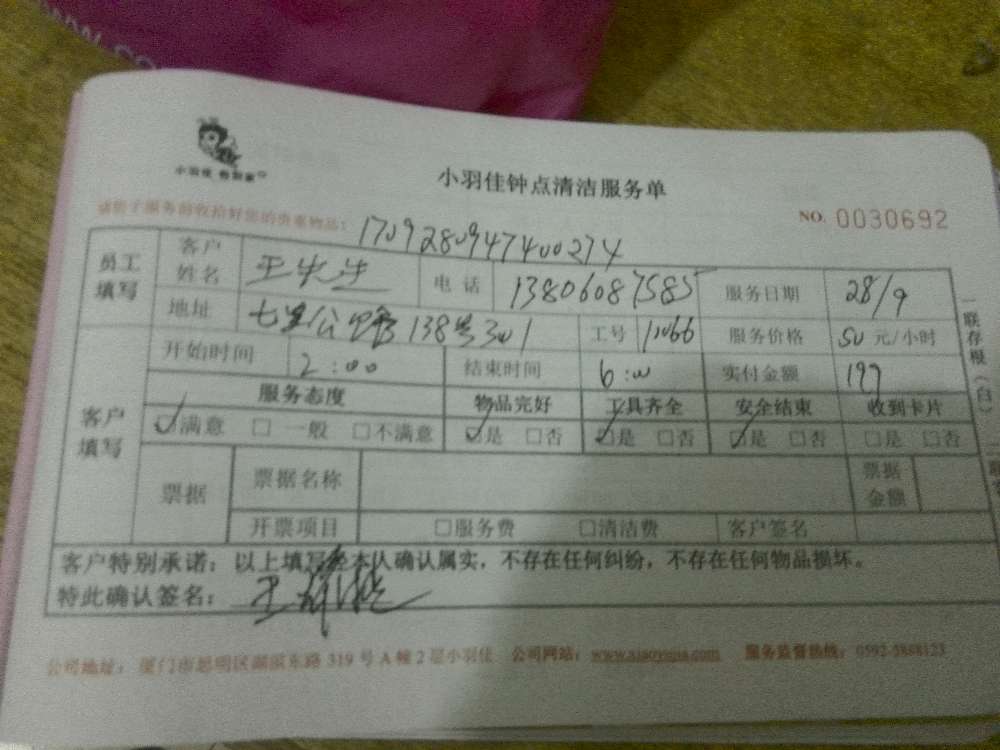 小羽佳 
小羽佳钟点清洁服务单
NO. 0030692
请您于服务前收拾好您的贵重物品：
1709280947400274
员工填写 客户姓名 王先生 电话 13806087585 服务日期 28/9
地址 138号301 工号 11066 服务价格 50 元/小时
客户填写 开始时间 2:00 结束时间 6:00 实付金额 197
服务态度 物品完好 工具齐全 安全结束 收到卡片
☑满意 □一般 □不满意 ☑是 □否 ☑是 □否 ☑是 □否 □是 □否
票据 票据名称 票据金额
开票项目 □服务费 □清洁费 客户签名
客户特别承诺：以上填写经本人确认属实，不存在任何纠纷，不存在任何物品损坏。
特此确认签名：王
公司地址：厦门市思明区湖滨东路319号A幢2层小羽佳 公司网站：www.xiaoyujia.com 服务监督热线：0592-5888123
一联存根（白）